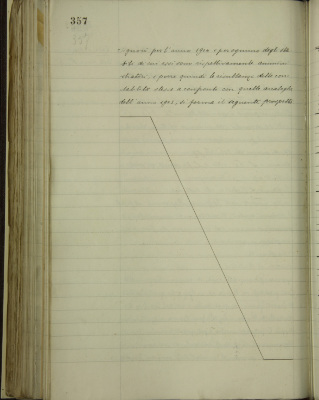 357
quali per l'anno 1902 e per ognuno degli
di cui essi sono rispettivamente ammini
stratori; e posta quindi le risultanze dello con
tabilità stessa a confronto con quelle analoghe
dell'anno 1901, si forma il seguente prospetto